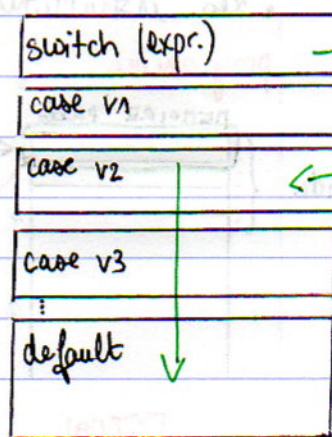 switch (expr.)
case v1
case v2
case v3
⋮
default